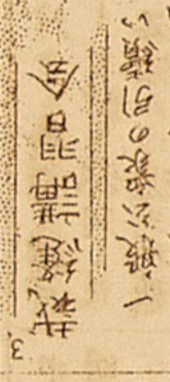 3.
裁縫講習会
一般公衆の引續い